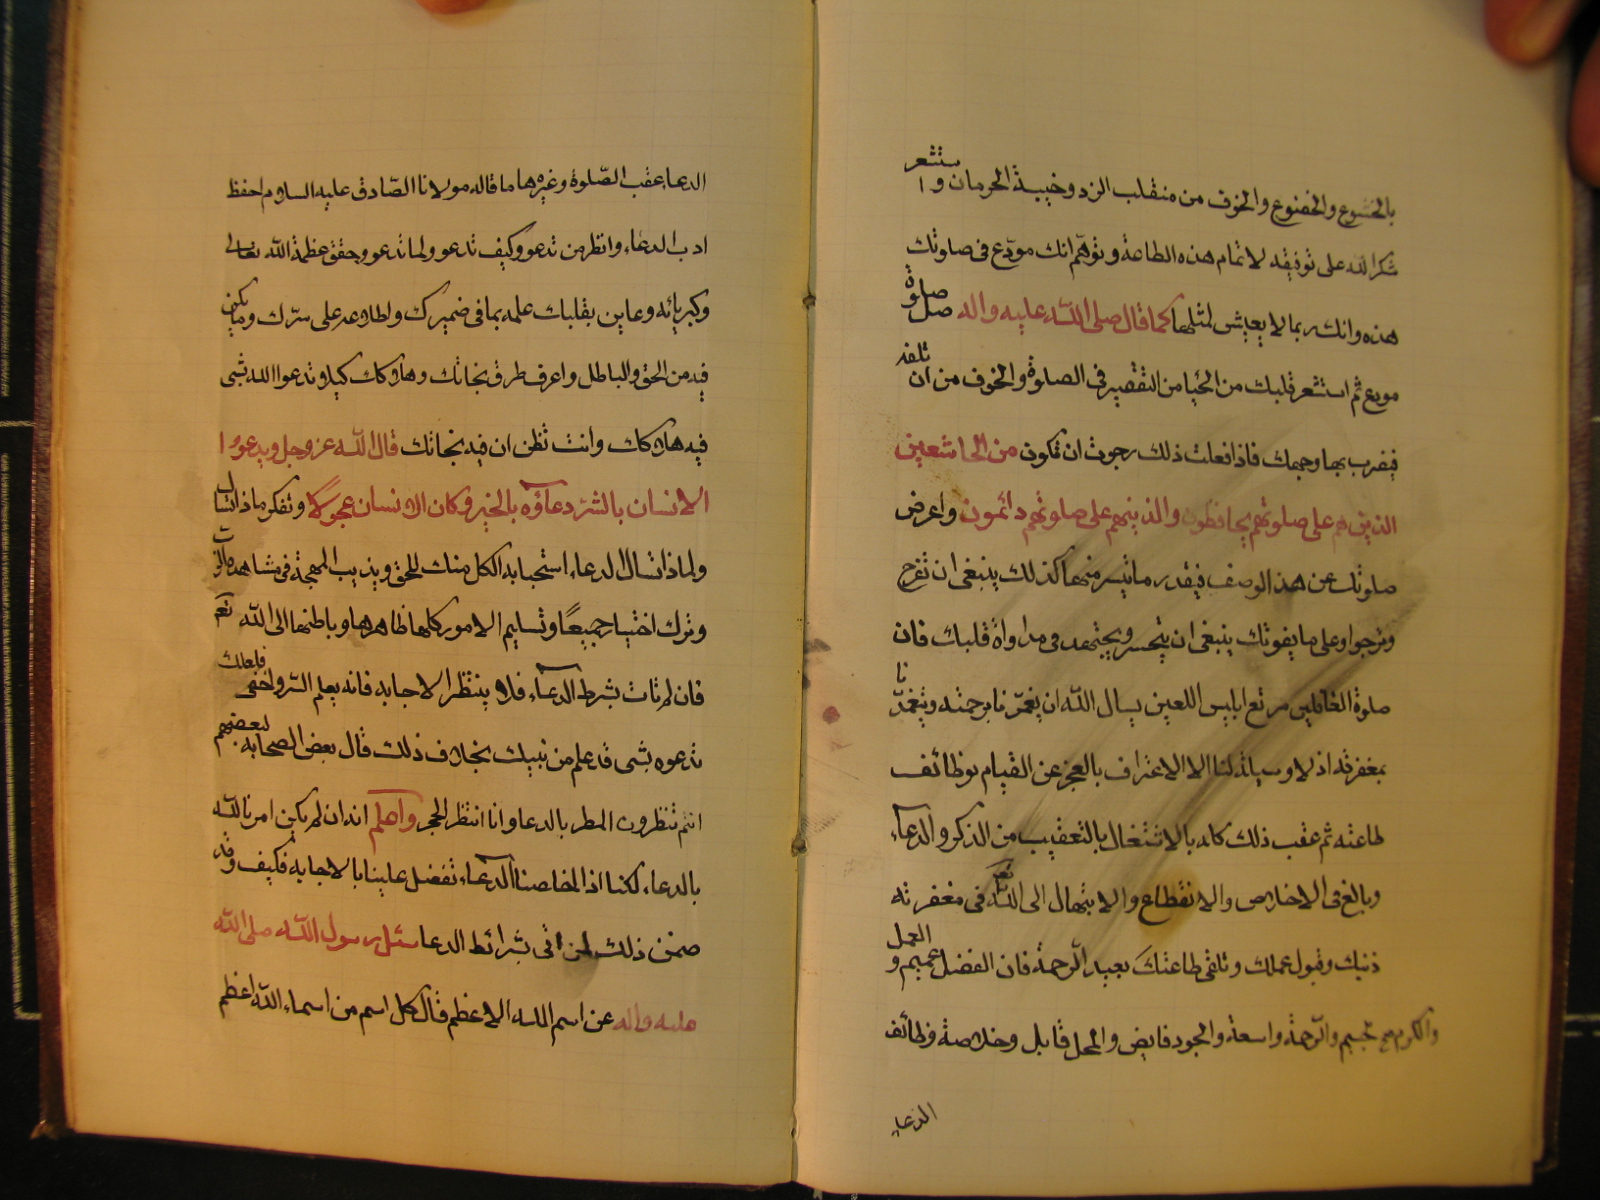 بالخشوع والخضوع والخوف من منقلب الرد وخيبة الحرمان واستشعر
شكرا لله على توفيقه لاتمام هذه الطاعة وتوهم انك مودع في صلوتك
هذه وانك ربما لا يعيش لمثلها كما قال صلى الله عليه واله صل صلوة
مودع ثم استشعر قلبك من الحيا من التقصير في الصلوة والخوف من ان تلفد
فيضرب بها وجهك فاذا فعلت ذلك رجوت ان تكون من الخاشعين
الذين هم على صلوتهم يحافظون والذينهم على صلوتهم دائمون واعرض
صلوتك عن هذ الوصف فبقدر ما تيسر منها كذلك ينبغى ان تفرح
وترجوا وعلى ما يفوتك ينبغى ان يتحسر ويجتهد في مداواة قلبك فان
صلوة الغافلين مرتع ابليس اللعين يسال الله ان يغمرنا برحمته ويتغمدنا
بمغفرته اذ لا وسيلة لنا الا الاعتراف بالعجز عن القيام بوظائف
طاعته ثم عقب ذلك كله بالاشتغال بالتعقيب من الذكر والدعآء
وبالغ في الاخلاص والانقطاع والابتهال الى الله تع في مغفرته
ذنبك وقبول عملك وتلقى طاعتك بعبد الرحمة فان الفضل عميم والعمل
والكرم جسيم والرحمة واسعة والجود فايض والمحل قابل وخلاصة وظائف
الدعاء
الدعاء عقب الصلوة وغيرها ما قاله مولانا الصادق عليه السلام احفظ
ادب الدعاء وانظر من تدعو وكيف تدعو ولما تدعو وحقق عظمة الله تعالى
وكبريائه وعاين بقلبك علمه بما في ضميرك واطلاعه على سرك وما يكن
فيه من الحق والباطل واعرف طرق نجاتك وهلاكك كيلا تدعوا الله بشى
فيه هلاكك وانت تظن ان فيه نجاتك قال الله عز وجل ويدعوا
الانسان بالشر دعاؤه بالخير وكان الانسان عجولا وتفكر ماذا تسال
ولماذا تسال الدعاء استجابة الكل منك للحق ويذيب المهجة في مشاهدة الرب
وترك اختيار جميعًا وتسليم الامور كلها ظاهرها وباطنها الى الله تع
فان لم تات بشرط الدعآء فلا ينتظر الاجابه فانه يعلم السر واخفى فلعلك
تدعوه بشى قد علم من نيتك بخلاف ذلك قال بعض الصحابه لبعضهم
انتم تنظرون المطر بالدعا وانا انتظر الحجر واعلم انه ان لم يكن امرنا الله
بالدعاء لكنا اذا اخلصنا الدعآء تفضل علينا بالاجابه فكيف وقد
ضمن ذلك لمن اتى بشرائط الدعا سئل رسول الله صلى الله
عليه واله عن اسم الله الاعظم قال كل اسم من اسماء الله اعظم